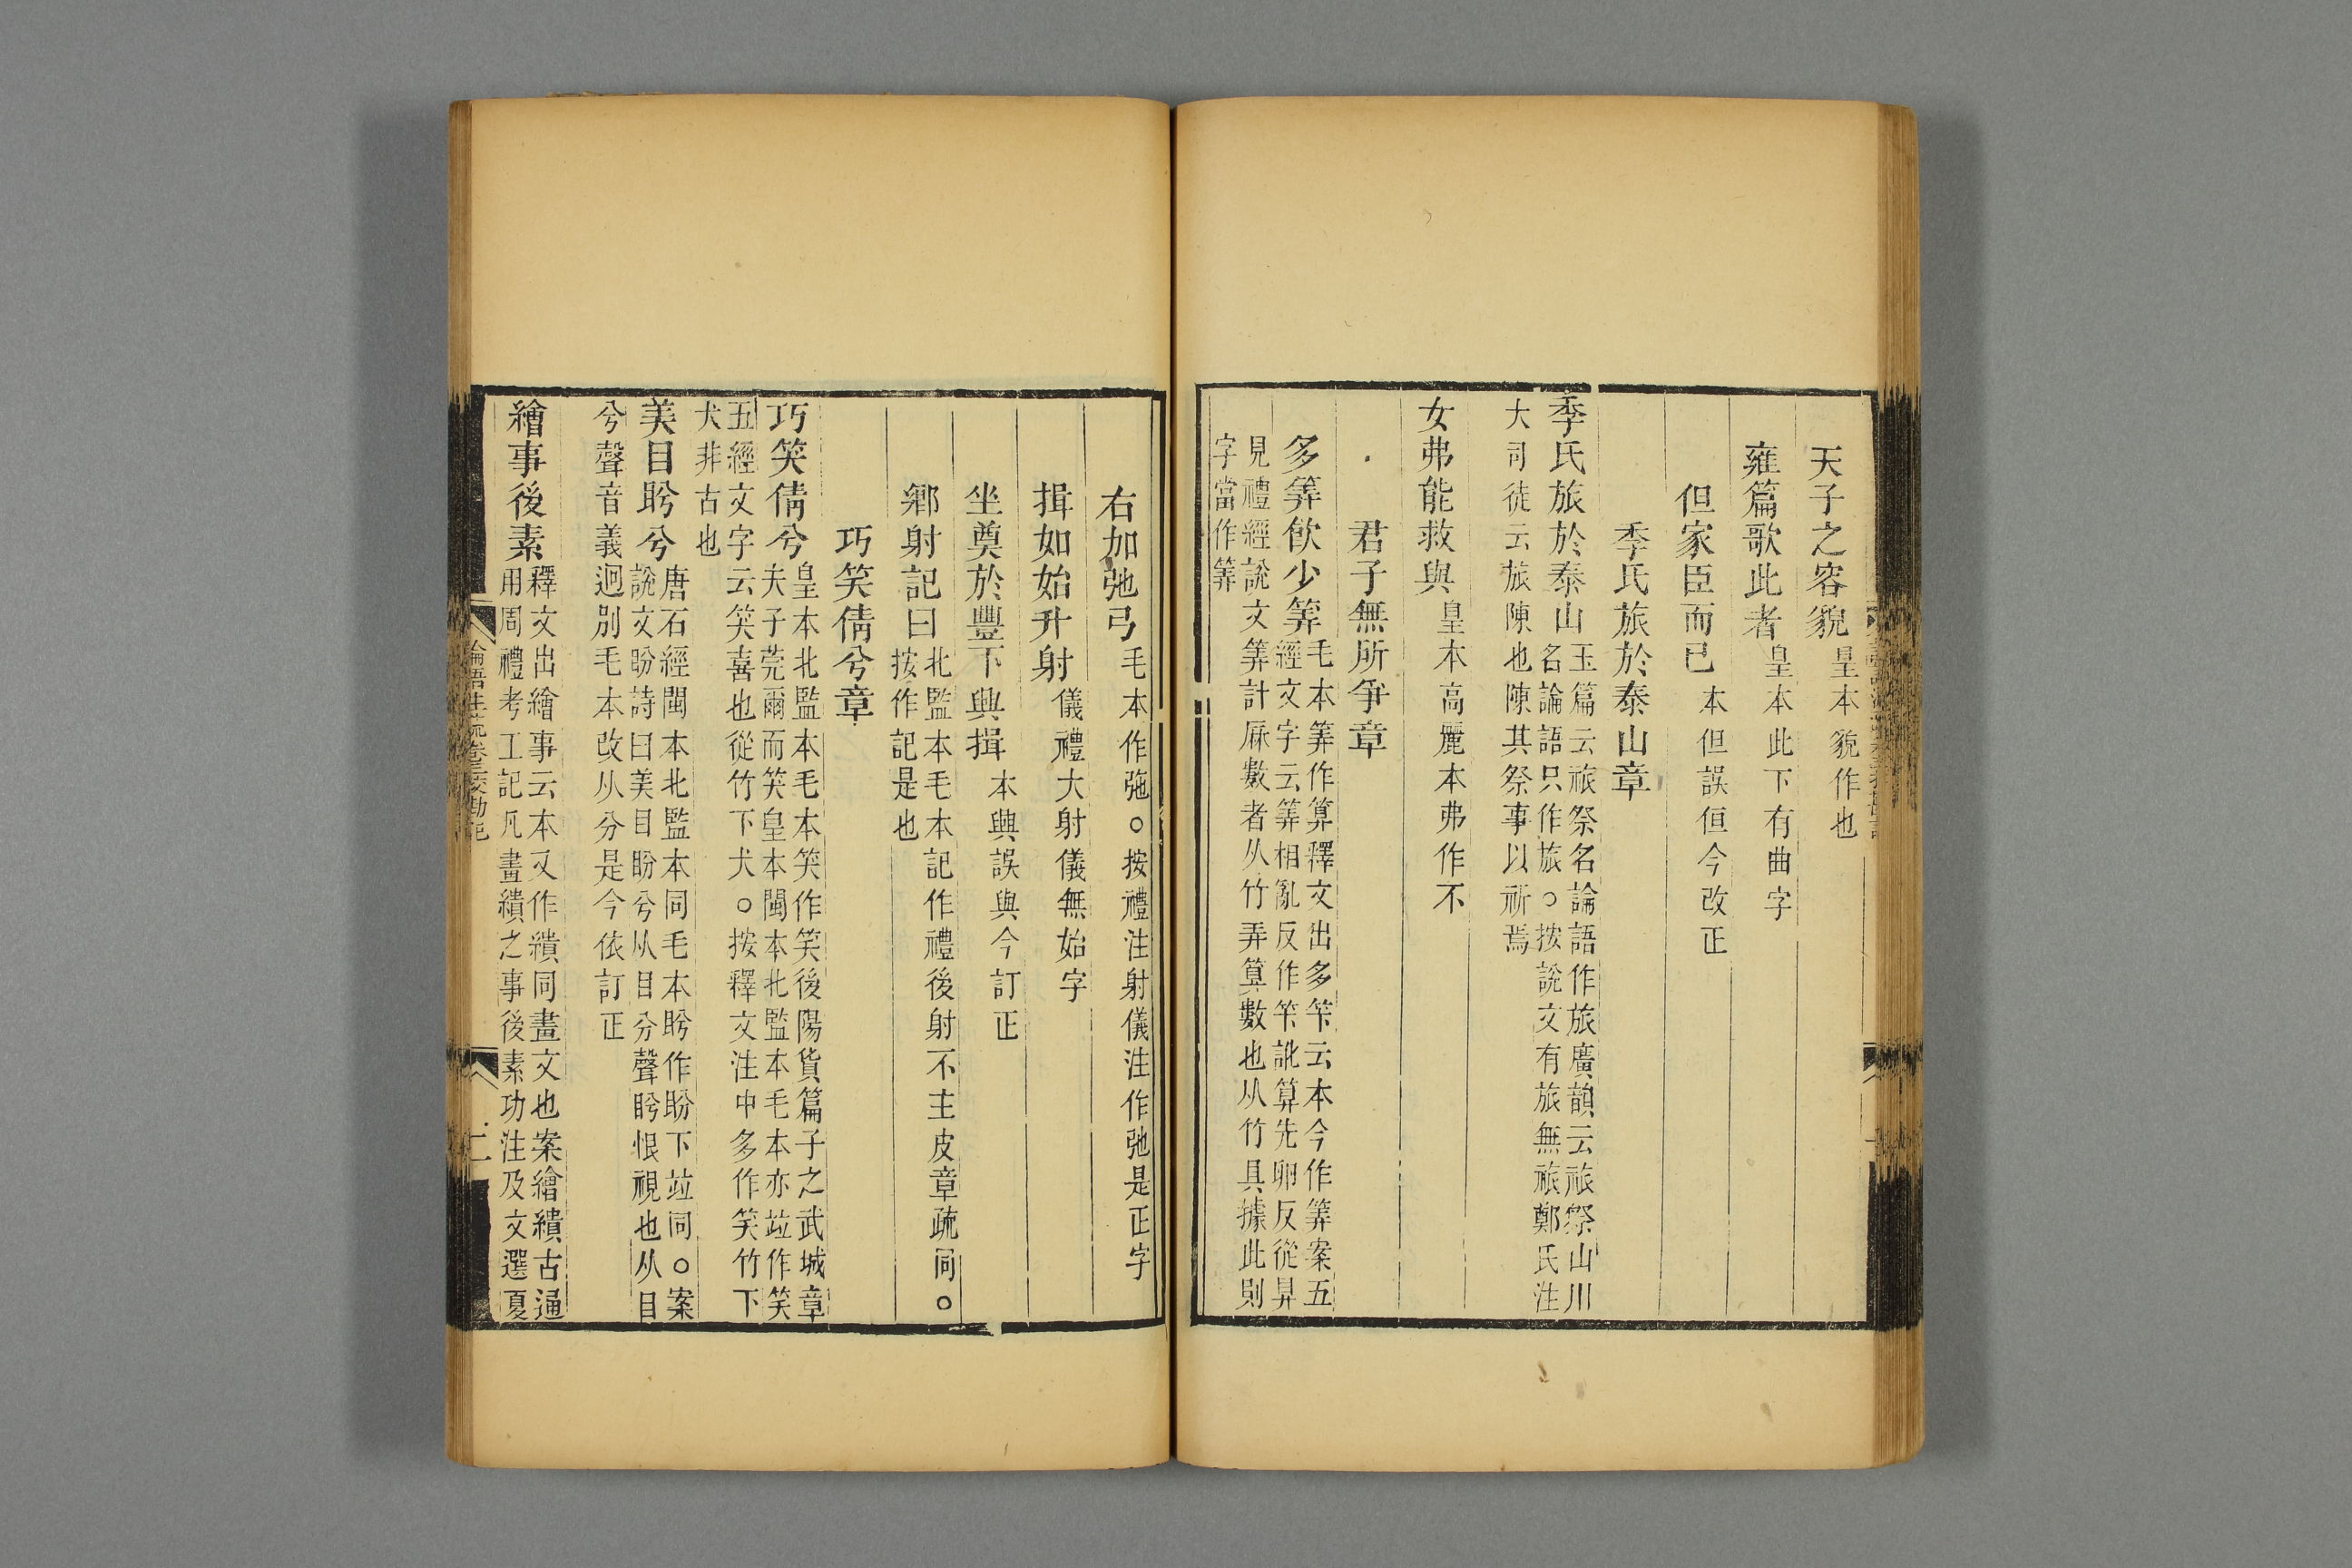 天子之容貌皇本貌作也
雍篇歌此者皇本此下有曲字
但家臣而已本但誤伹今改正
季氏旅於泰山章
季氏旅於泰山玉篇云祣祭名論語作旅廣韻云祣祭山川
名論語只作旅○按說文有旅無祣鄭氏注
大司徒云旅陳也陳其祭事以祈焉
女弗能救與皇本高麗本弗作不
君子無所爭章
多筭飲少筭毛本筭作算釋文出多筭云本今作筭案五
經文字云筭相亂反作筭訛算先卵反從昇
見禮經說文筭計厤數者从竹弄算數也从竹具據此則
字當作筭
右加弛弓毛本作㢮○按禮注射儀注作弛是正字
揖如始升射儀禮大射儀無始字
坐奠於豐下興揖本興誤與今訂正
鄉射記曰北監本毛本記作禮後射不主皮章疏同○
按作記是也
巧笑倩兮章
巧笑倩兮皇本北監本毛本笑作笑後陽貨篇子之武城章
夫子莞爾而笑皇本閩本北監本毛本亦竝作笑
五經文字云笑喜也從竹下犬○按釋文注中多作笑竹下
犬非古也
美目盻兮唐石經閩本北監本同毛本盻作盼下竝同○案
說文盼詩曰美目盼兮从目分聲盻恨視也从目
兮聲音義迥別毛本改从分是今依訂正
繪事後素釋文出繪事云本又作繢同畫文也案繪繢古通
用周禮考工記凡畫繢之事後素功注及文選夏
論語注疏卷三校勘記
二